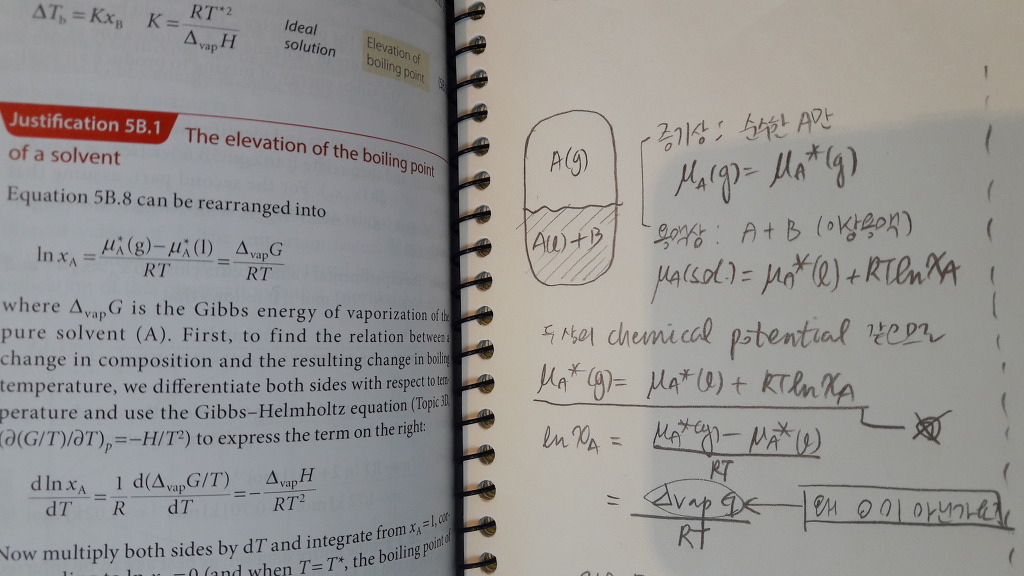 ΔT_b = Kx_B K = RT*² / Δ_vap H Ideal solution
Elevation of boiling point
Justification 5B.1 The elevation of the boiling point
of a solvent
Equation 5B.8 can be rearranged into
ln x_A = (μ*_A(g) − μ*_A(l)) / RT = Δ_vap G / RT
where Δ_vap G is the Gibbs energy of vaporization of the
pure solvent (A). First, to find the relation between a
change in composition and the resulting change in boiling
temperature, we differentiate both sides with respect to tem
perature and use the Gibbs–Helmholtz equation (Topic 3D,
(∂(G/T)/∂T)_p = −H/T²) to express the term on the right:
d ln x_A / dT = (1/R) d(Δ_vap G/T) / dT = − Δ_vap H / RT²
Now multiply both sides by dT and integrate from x_A = 1, cor-
ln x_A = 0 (and when T = T*, the boiling point of
A(g)
A(l) + B
증기상 : 순수한 A만
μ_A(g) = μ_A*(g)
용액상 : A + B (이상용액)
μ_A(sol.) = μ_A*(l) + RT ln X_A
두 상의 chemical potential 같으므로
μ_A*(g) = μ_A*(l) + RT ln X_A
ln X_A = (μ_A*(g) − μ_A*(l)) / RT
= Δvap G / RT
왜 0이 아닌가요